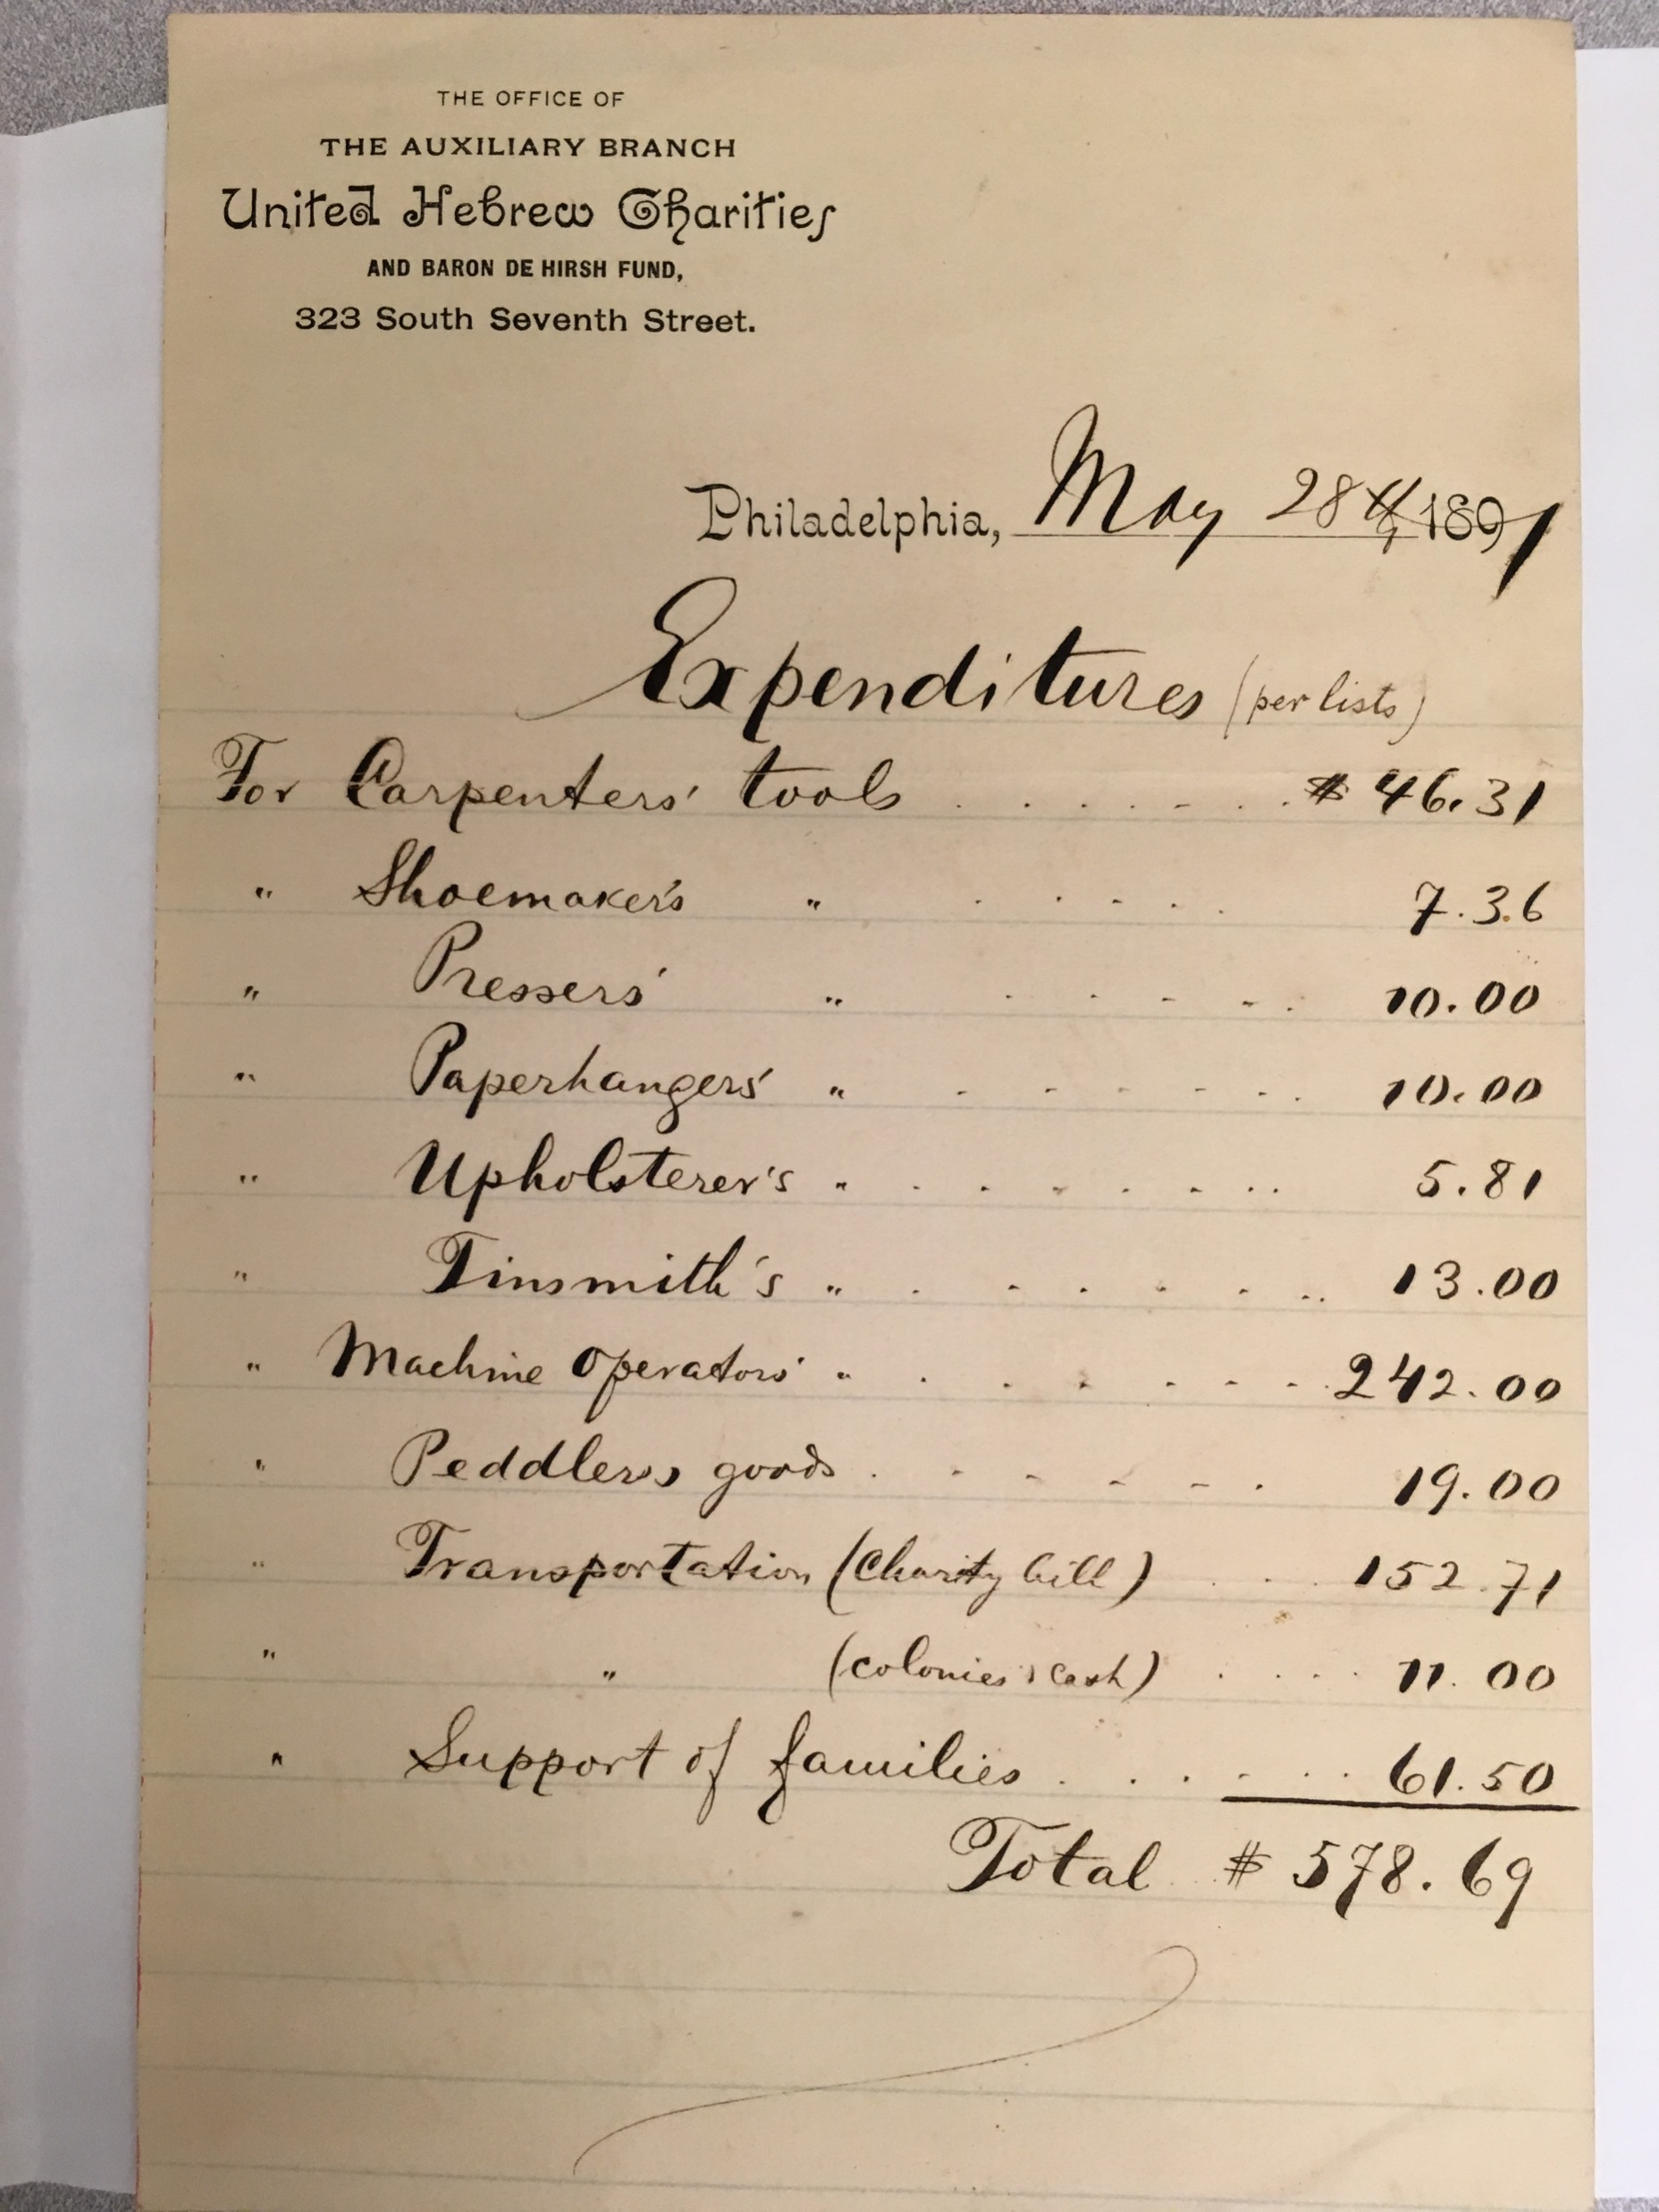 THE OFFICE OF
THE AUXILIARY BRANCH
United Hebrew Charities
AND BARON DE HIRSH FUND,
323 South Seventh Street.
Philadelphia, May 28th, 1891
Expenditures (per lists)
For Carpenters' tools . . . . . . . $ 46.31
" Shoemaker's " . . . . . 7.36
" Pressers' " . . . . . 10.00
" Paperhangers' " . . . . . . 10.00
" Upholsterer's " . . . . . . . . 5.81
" Tinsmith's " . . . . . . . 13.00
" Machine Operators' " . . . . . . . 242.00
" Peddlers goods . . . . . . 19.00
" Transportation (Charity bill) . . . 152.71
" " (colonies & cash) . . . . 11.00
" Support of families . . . . . . 61.50
Total $ 578.69